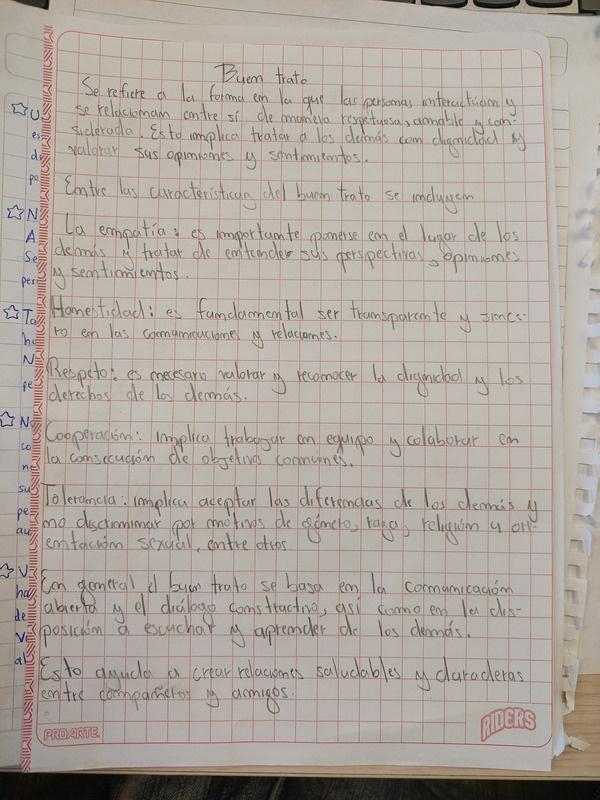 Buen trato
Se refiere a la forma en la que las personas interactúan y
se relacionan entre sí de manera respetuosa, amable y con-
siderada. Esto implica tratar a los demás con dignidad y
valorar sus opiniones y sentimientos.
Entre las características del buen trato se incluyen
La empatía: es importante ponerse en el lugar de los
demás y tratar de entender sus perspectivas, opiniones
y sentimientos.
Honestidad: es fundamental ser transparente y since-
ro en las comunicaciones y relaciones.
Respeto: es necesaro valorar y reconocer la dignidad y los
derechos de los demás.
Cooperación: implica trabajar en equipo y colaborar en
la consecución de objetivos comunes.
Tolerancia: implica aceptar las diferencias de los demás y
no discriminar por motivos de género, raza, religión u ori-
entación sexual, entre otros
En general el buen trato se basa en la comunicación
abierta y el diálogo constructivo, así como en la dis-
posición a escuchar y aprender de los demás.
Esto ayuda a crear relaciones saludables y duraderas
entre compañeros y amigos.
PROARTE
RIDERS